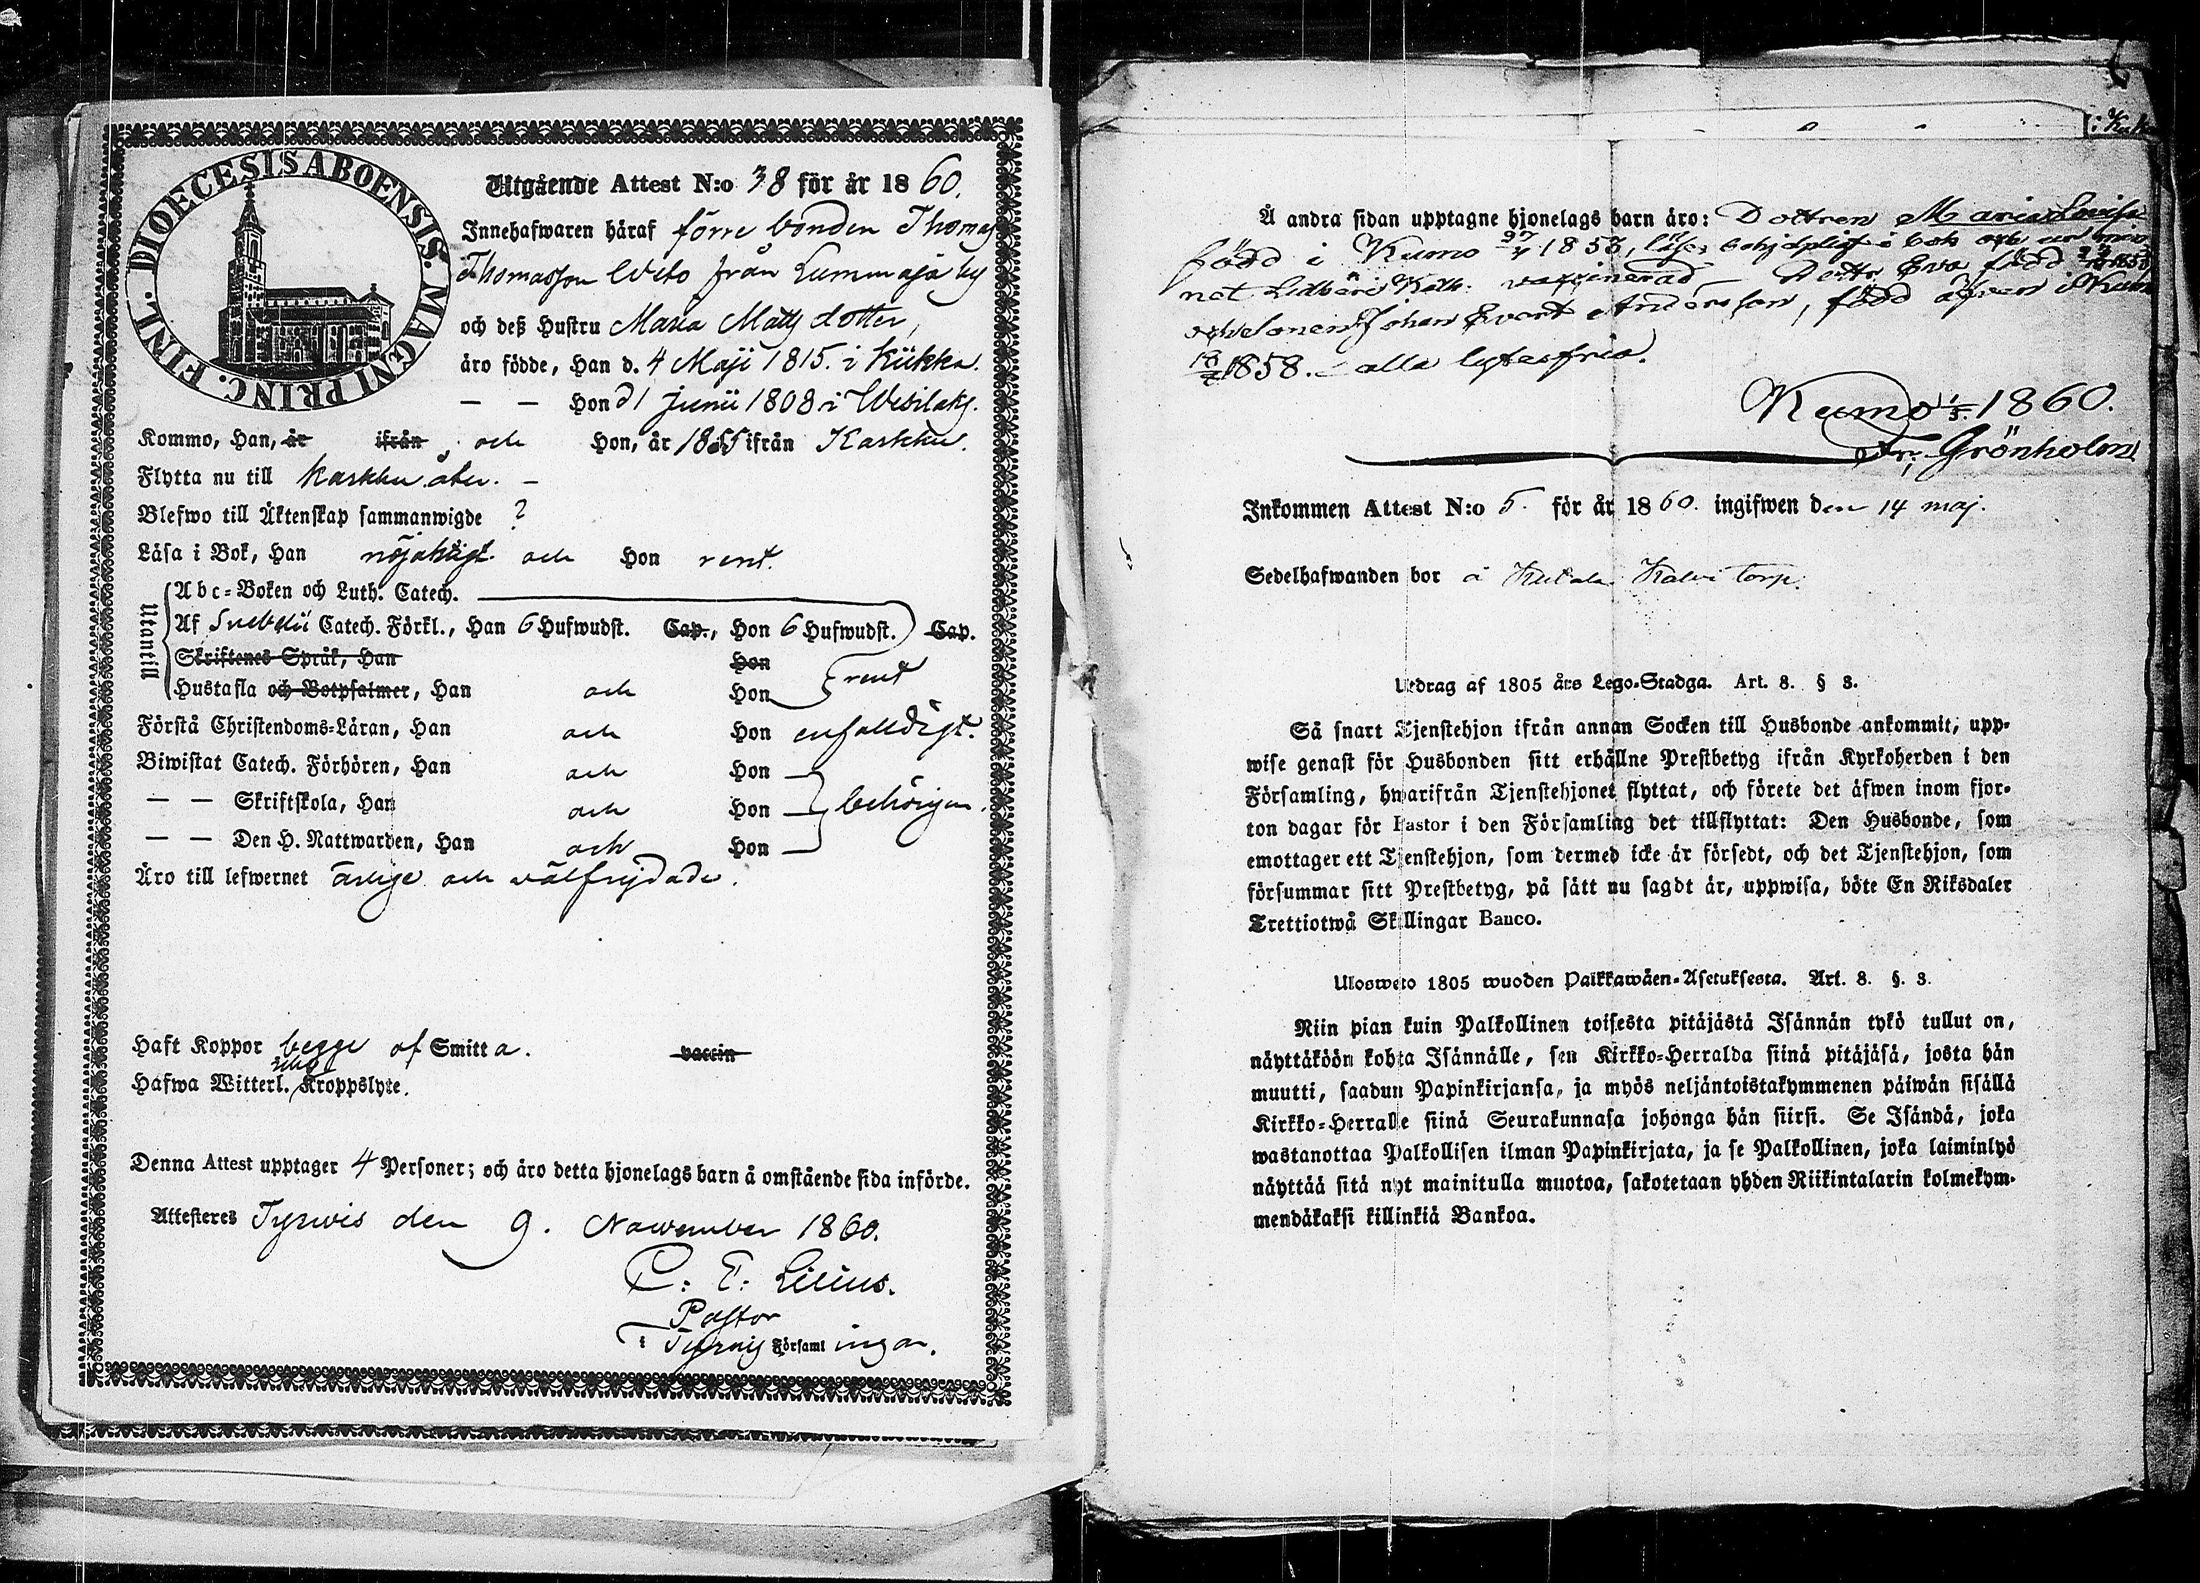 DIOECESIS ABOENSIS. MAGNI PRINC. FINL.
Utgående Attest N:o 38 för år 1860.
Innehafwaren häraf förre bonden Thomas
Thomasson Weto från Lummaja by
och deß Hustru Maria Matts dotter,
äro födde, Han d. 4 Maji 1815. i Kiikka.
— — Hon d 1 Junii 1808 i Wesilaks.
Kommo, Han, år ifrån och Hon, år 1855 ifrån Karkku.
Flytta nu till Karkku åter. –
Blefwo till Äktenskap sammanwigde ?
Läsa i Bok, Han nöjaktigt och Hon rent.
Utantill
Abc-Boken och Luth. Catech.
Af Svebelii Catech. Förkl., Han 6 Hufwudst. Cap., Hon 6 Hufwudst. Cap.
Skriftenes Språk, Han Hon
Hustafla och Botpsalmer, Han och Hon rent
Förstå Christendoms-Läran, Han och Hon enfalldigt.
Biwistat Catech. Förhören, Han och Hon
— — Skriftskola, Han och Hon behörigen.
— — Den H. Nattwarden, Han och Hon
Äro till lefwernet ärlige och välfrejdade.
Haft Koppor begge af Smitta. vaccin
Hafwa Witterl. Kroppslyte.
Denna Attest upptager 4 Personer; och äro detta hjonelags barn å omstående sida införde.
Attesteres Tyrwis den 9. November 1860.
C: F: Lilius.
Pastor
i Tyrvis Församlingar.
Å andra sidan upptagne hjonelags barn äro: Dottren Maria Lovisa
född i Kumo 27/4 1853, bok och
vaccinerad Dottr Eva född
och Sonen Johan Evert Andersson, född äfven i Kumo
1858. – alla lytesfria.
Kumo 1/5 1860.
Fr. Grönholm
Inkommen Attest N:o 5. för år 1860. ingifwen den 14 maj.
Sedelhafwanden bor å torp.
Utdrag af 1805 års Lego-Stadga. Art. 8. § 3.
Så snart Tjenstehjon ifrån annan Socken till Husbonde ankommit, upp-
wise genast för Husbonden sitt erhållne Prestbetyg ifrån Kyrkoherden i den
Församling, hwarifrån Tjenstehjonet flyttat, och förete det äfwen inom fjor-
ton dagar för Pastor i den Församling det tillflyttat: Den Husbonde, som
emottager ett Tjenstehjon, som dermed icke är försedt, och det Tjenstehjon, som
försummar sitt Prestbetyg, på sätt nu sagdt är, uppwisa, böte En Riksdaler
Trettiotwå Skillingar Banco.
Ulosweto 1805 wuoden Palkkawäen-Asetuksesta. Art. 8. §. 3.
Niin pian kuin Palkollinen toisesta pitäjästä Isännän tykö tullut on,
näyttäköön kohta Isännälle, sen Kirkko-Herralda siinä pitäjäsä, josta hän
muutti, saadun Papinkirjansa, ja myös neljäntoistakymmenen päiwän sisällä
Kirkko-Herralle siinä Seurakunnasa johonga hän siirsi. Se Isändä, joka
wastanottaa Palkollisen ilman Papinkirjata, ja se Palkollinen, joka laiminlyö
näyttää sitä nyt mainitulla muotoa, sakotetaan yhden Riikintalarin kolmekym-
mendäkaksi killinkiä Bankoa.